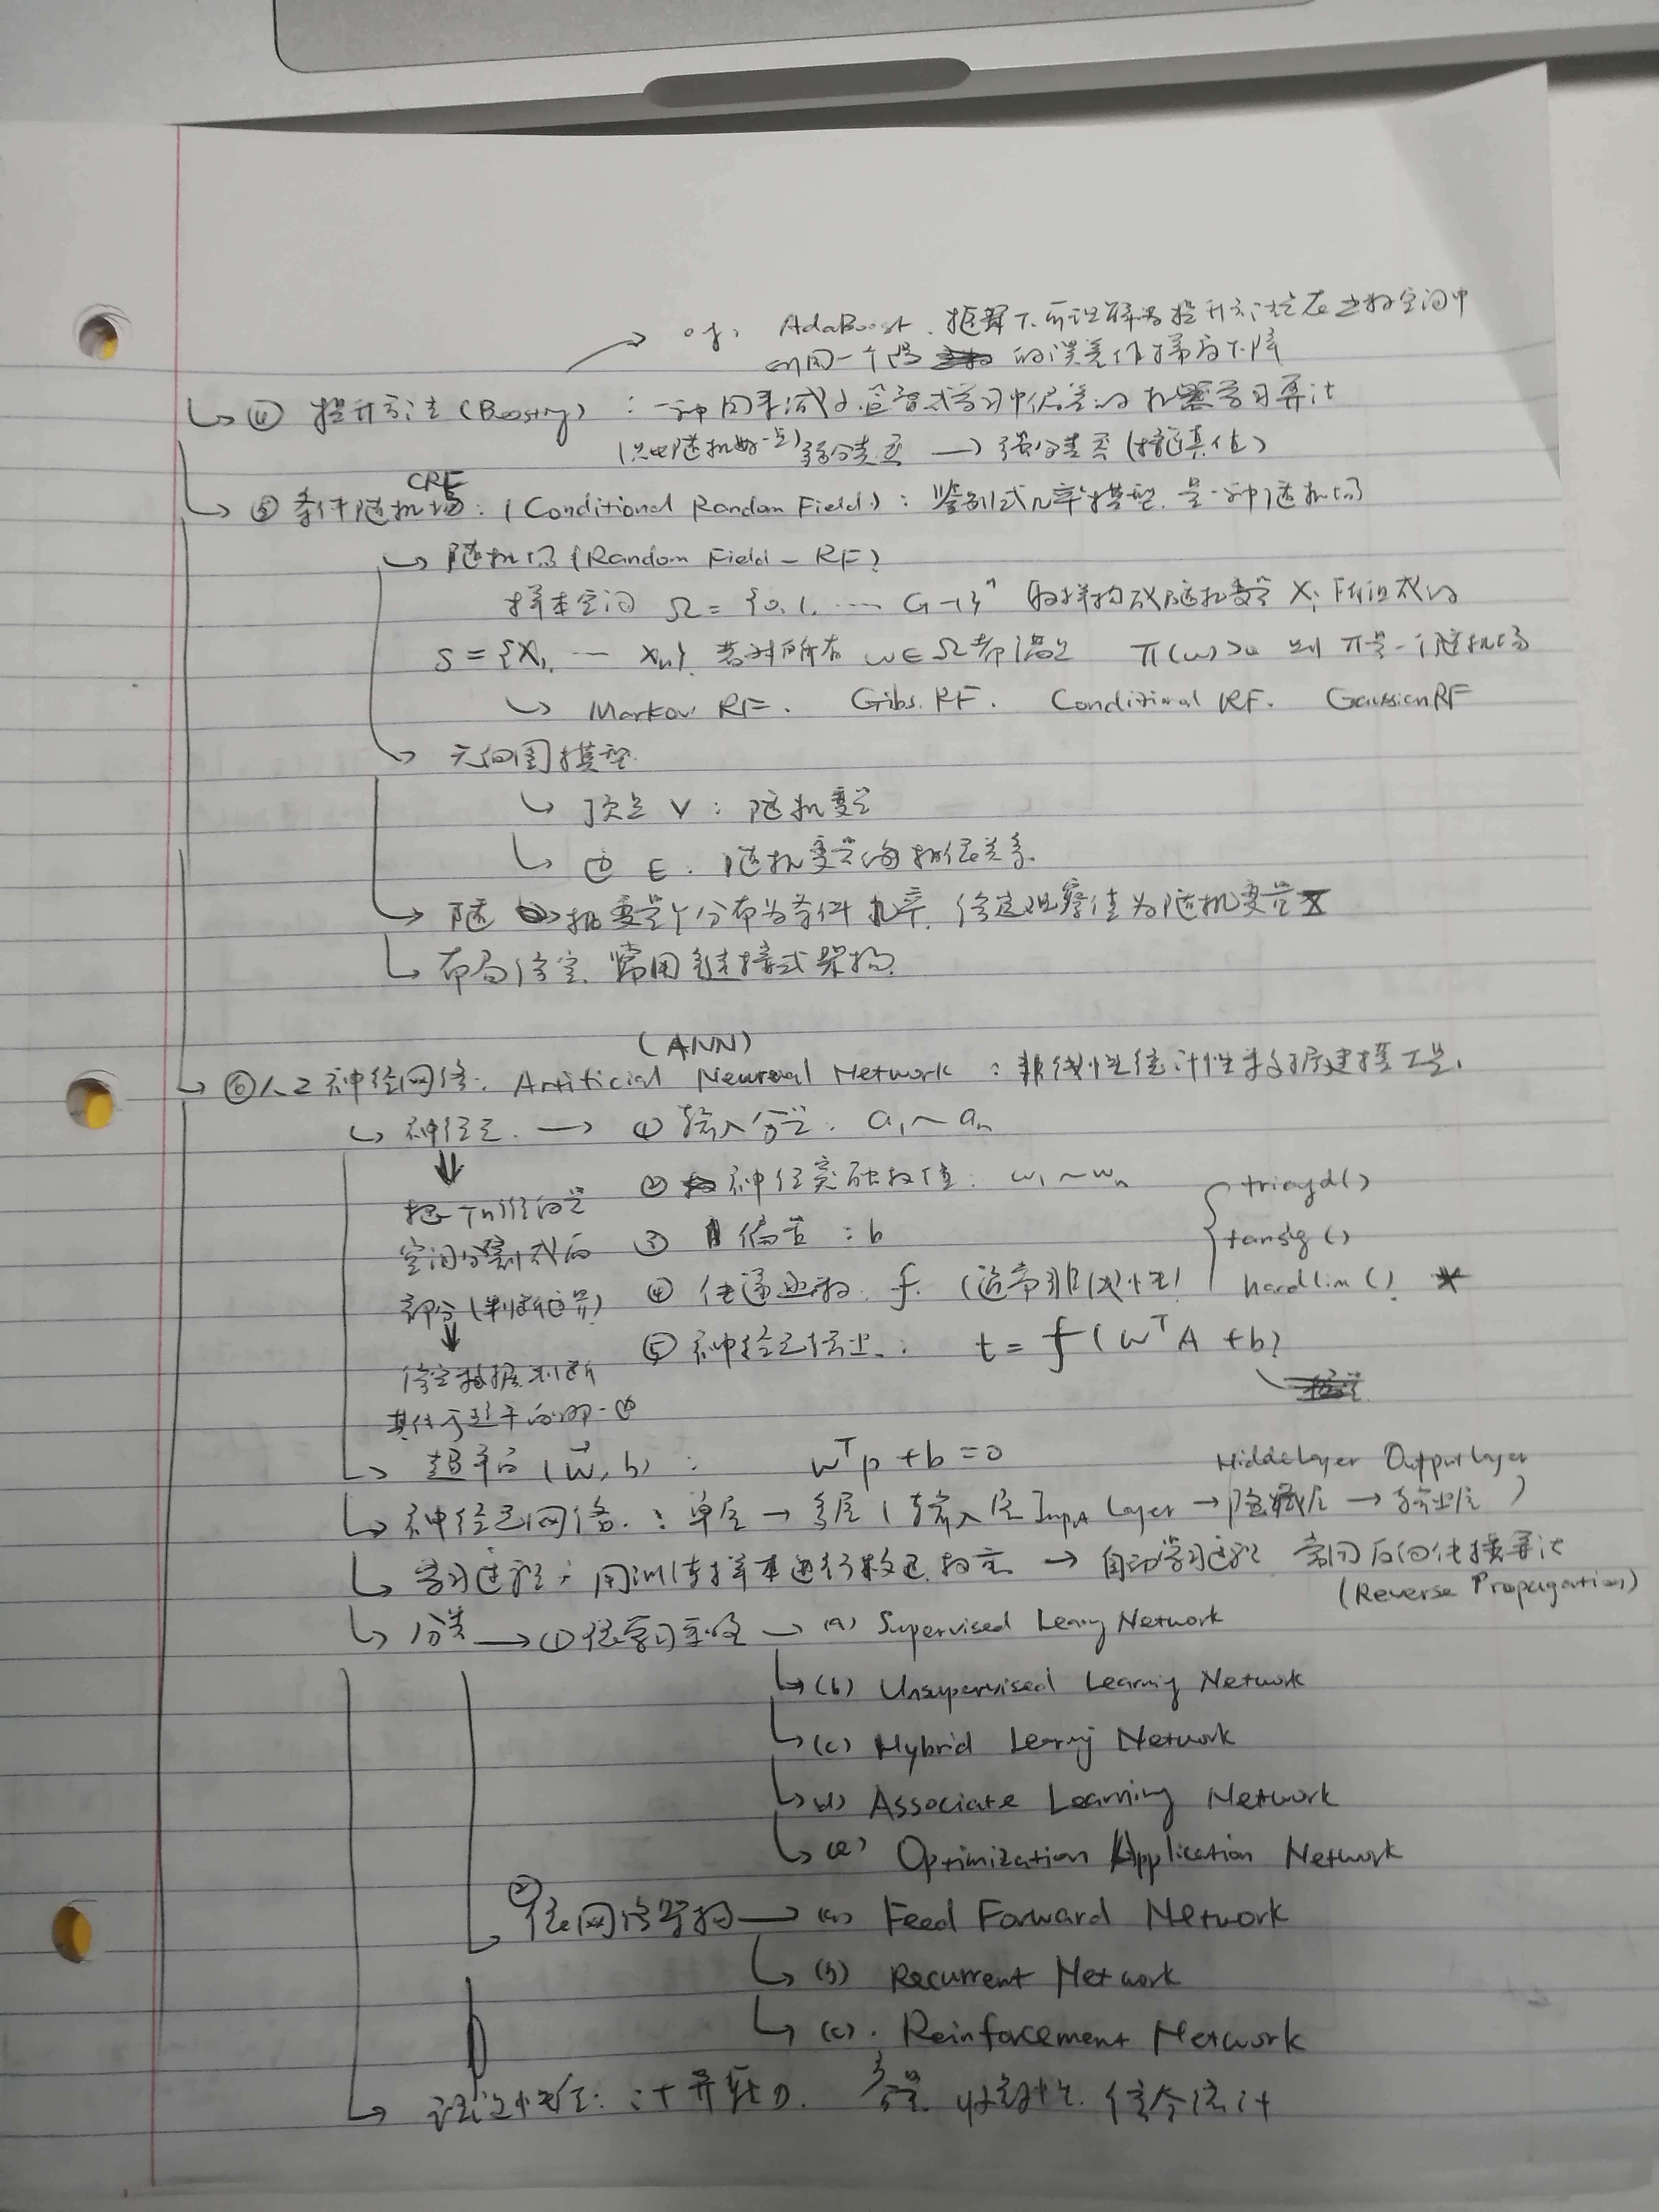 → eg. AdaBoost. 框架下可理解为提升方法在函数空间中
利用一个凸 的误差作梯度下降
↳ ④ 提升方法 (Boosting) : 一种用来减小监督式学习中偏差的机器学习算法
(只比随机好一点) 弱分类器 → 强分类器 (接近真值)
CRF
↳ ⑤ 条件随机场: (Conditional Random Field) : 鉴别式几率模型. 是一种随机场
↳ 随机场 (Random Field - RF)
样本空间 Ω = {0, 1, ... G-1}ⁿ 的样构成随机变量 Xi 所组成的
S = {X₁ ... Xn} 若对所有 ω∈Ω 都满足 π(ω)>0 则 π是一个随机场
↳ Markov RF. Gibs. RF. Conditional RF. Gaussian RF
↳ 无向图模型
↳ 顶点 V : 随机变量
↳ 边 E. 随机变量间相依关系.
↳ 随机变量Y分布为条件几率, 给定观察值为随机变量X
↳ 布局给定. 常用链接式架构.
(ANN)
↳ ⑥ 人工神经网络: Artificial Neuraal Network : 非线性统计性数据建模工具.
↳ 神经元. → ① 输入分量. a₁ ~ aₙ
⇓ ② 神经突触权值: w₁ ~ wₙ { triogd()
把一个n维向量
空间分割成两 ③ 偏置 : b tansig ()
部分 (判断边界) ④ 传递函数. f. (通常非线性) hardlim() *
↓ ⑤ 神经元输出. : t = f (Wᵀ A + b)
给定数据判断
其位于超平面哪一边
↳ 超平面 (w⃗, b) : wᵀp + b = 0 Hidde Layer Output Layer
↳ 神经元网络. : 单层 → 多层 ( 输入层 Input Layer → 隐藏层 → 输出层 )
↳ 学习过程 : 用训练样本进行校正权重 → 自动学习过程 常用反向传播算法
(Reverse Propagation)
↳ 分类 → ① 依学习策略 → (a) Supervised Learng Network
↳ (b) Unsupervised Learning Network
↳ (c) Hybrid Learnig Network
↳ (d) Associate Learning Network
↳ (e) Optimization Application Network
② 依网络架构 → (a) Feed Forward Network
↳ (b) Recurrent Network
↳ (c). Reinforcement Network
↳ 理论性质: 计算能力. 容量. 收敛性. 综合统计